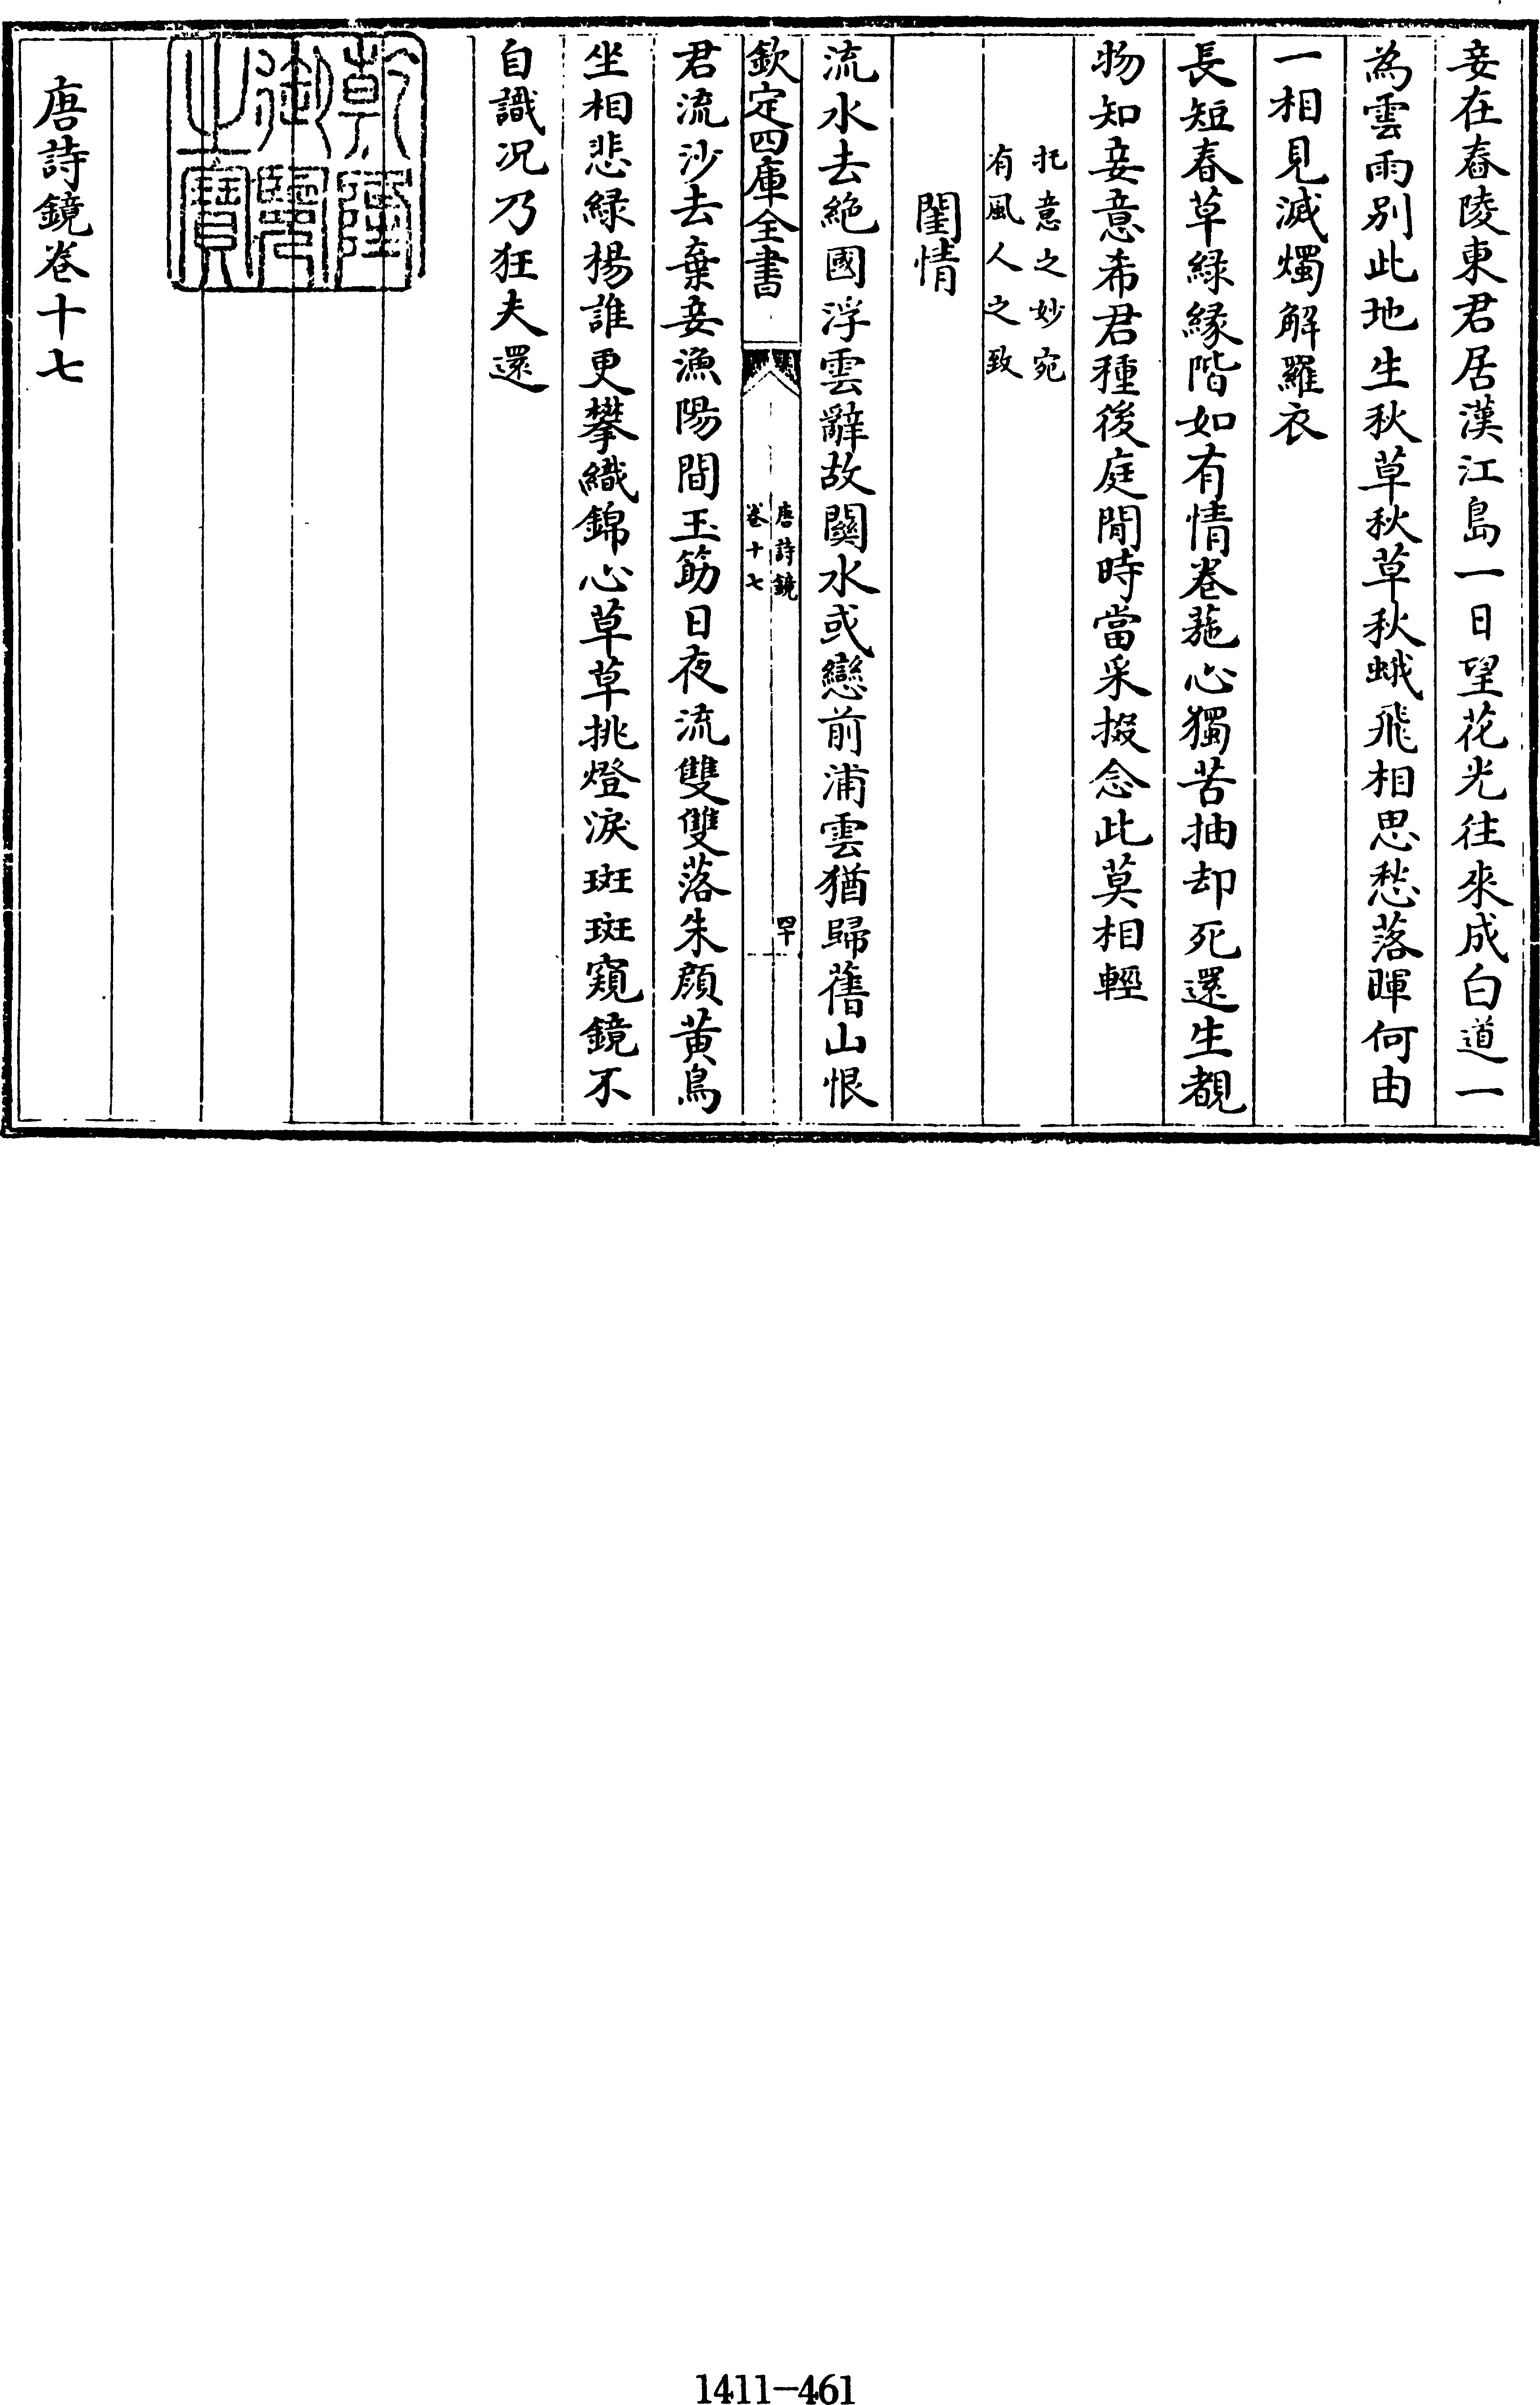 妾在舂陵東君居漢江島一日望花光往來成白道一
為雲雨别此地生秋草秋草秋蛾飛相思愁落暉何由
一相見滅燭解羅衣
長短春草緑縁階如有情卷葹心獨苦抽却死還生覩
物知妾意希君種後庭閒時當采掇念此莫相輕
托意之妙宛
有風人之致
閨情
流水去絶國浮雲辭故闗水或戀前浦雲猶歸舊山恨
欽定四庫全書
唐詩鏡
卷十七
罕
君流沙去棄妾漁陽間玉筯日夜流雙雙落朱顔黄鳥
坐相悲緑楊誰更攀織錦心草草挑燈淚斑斑窺鏡不
自識况乃狂夫還
乾隆御覽之寶
唐詩鏡卷十七
1411-461